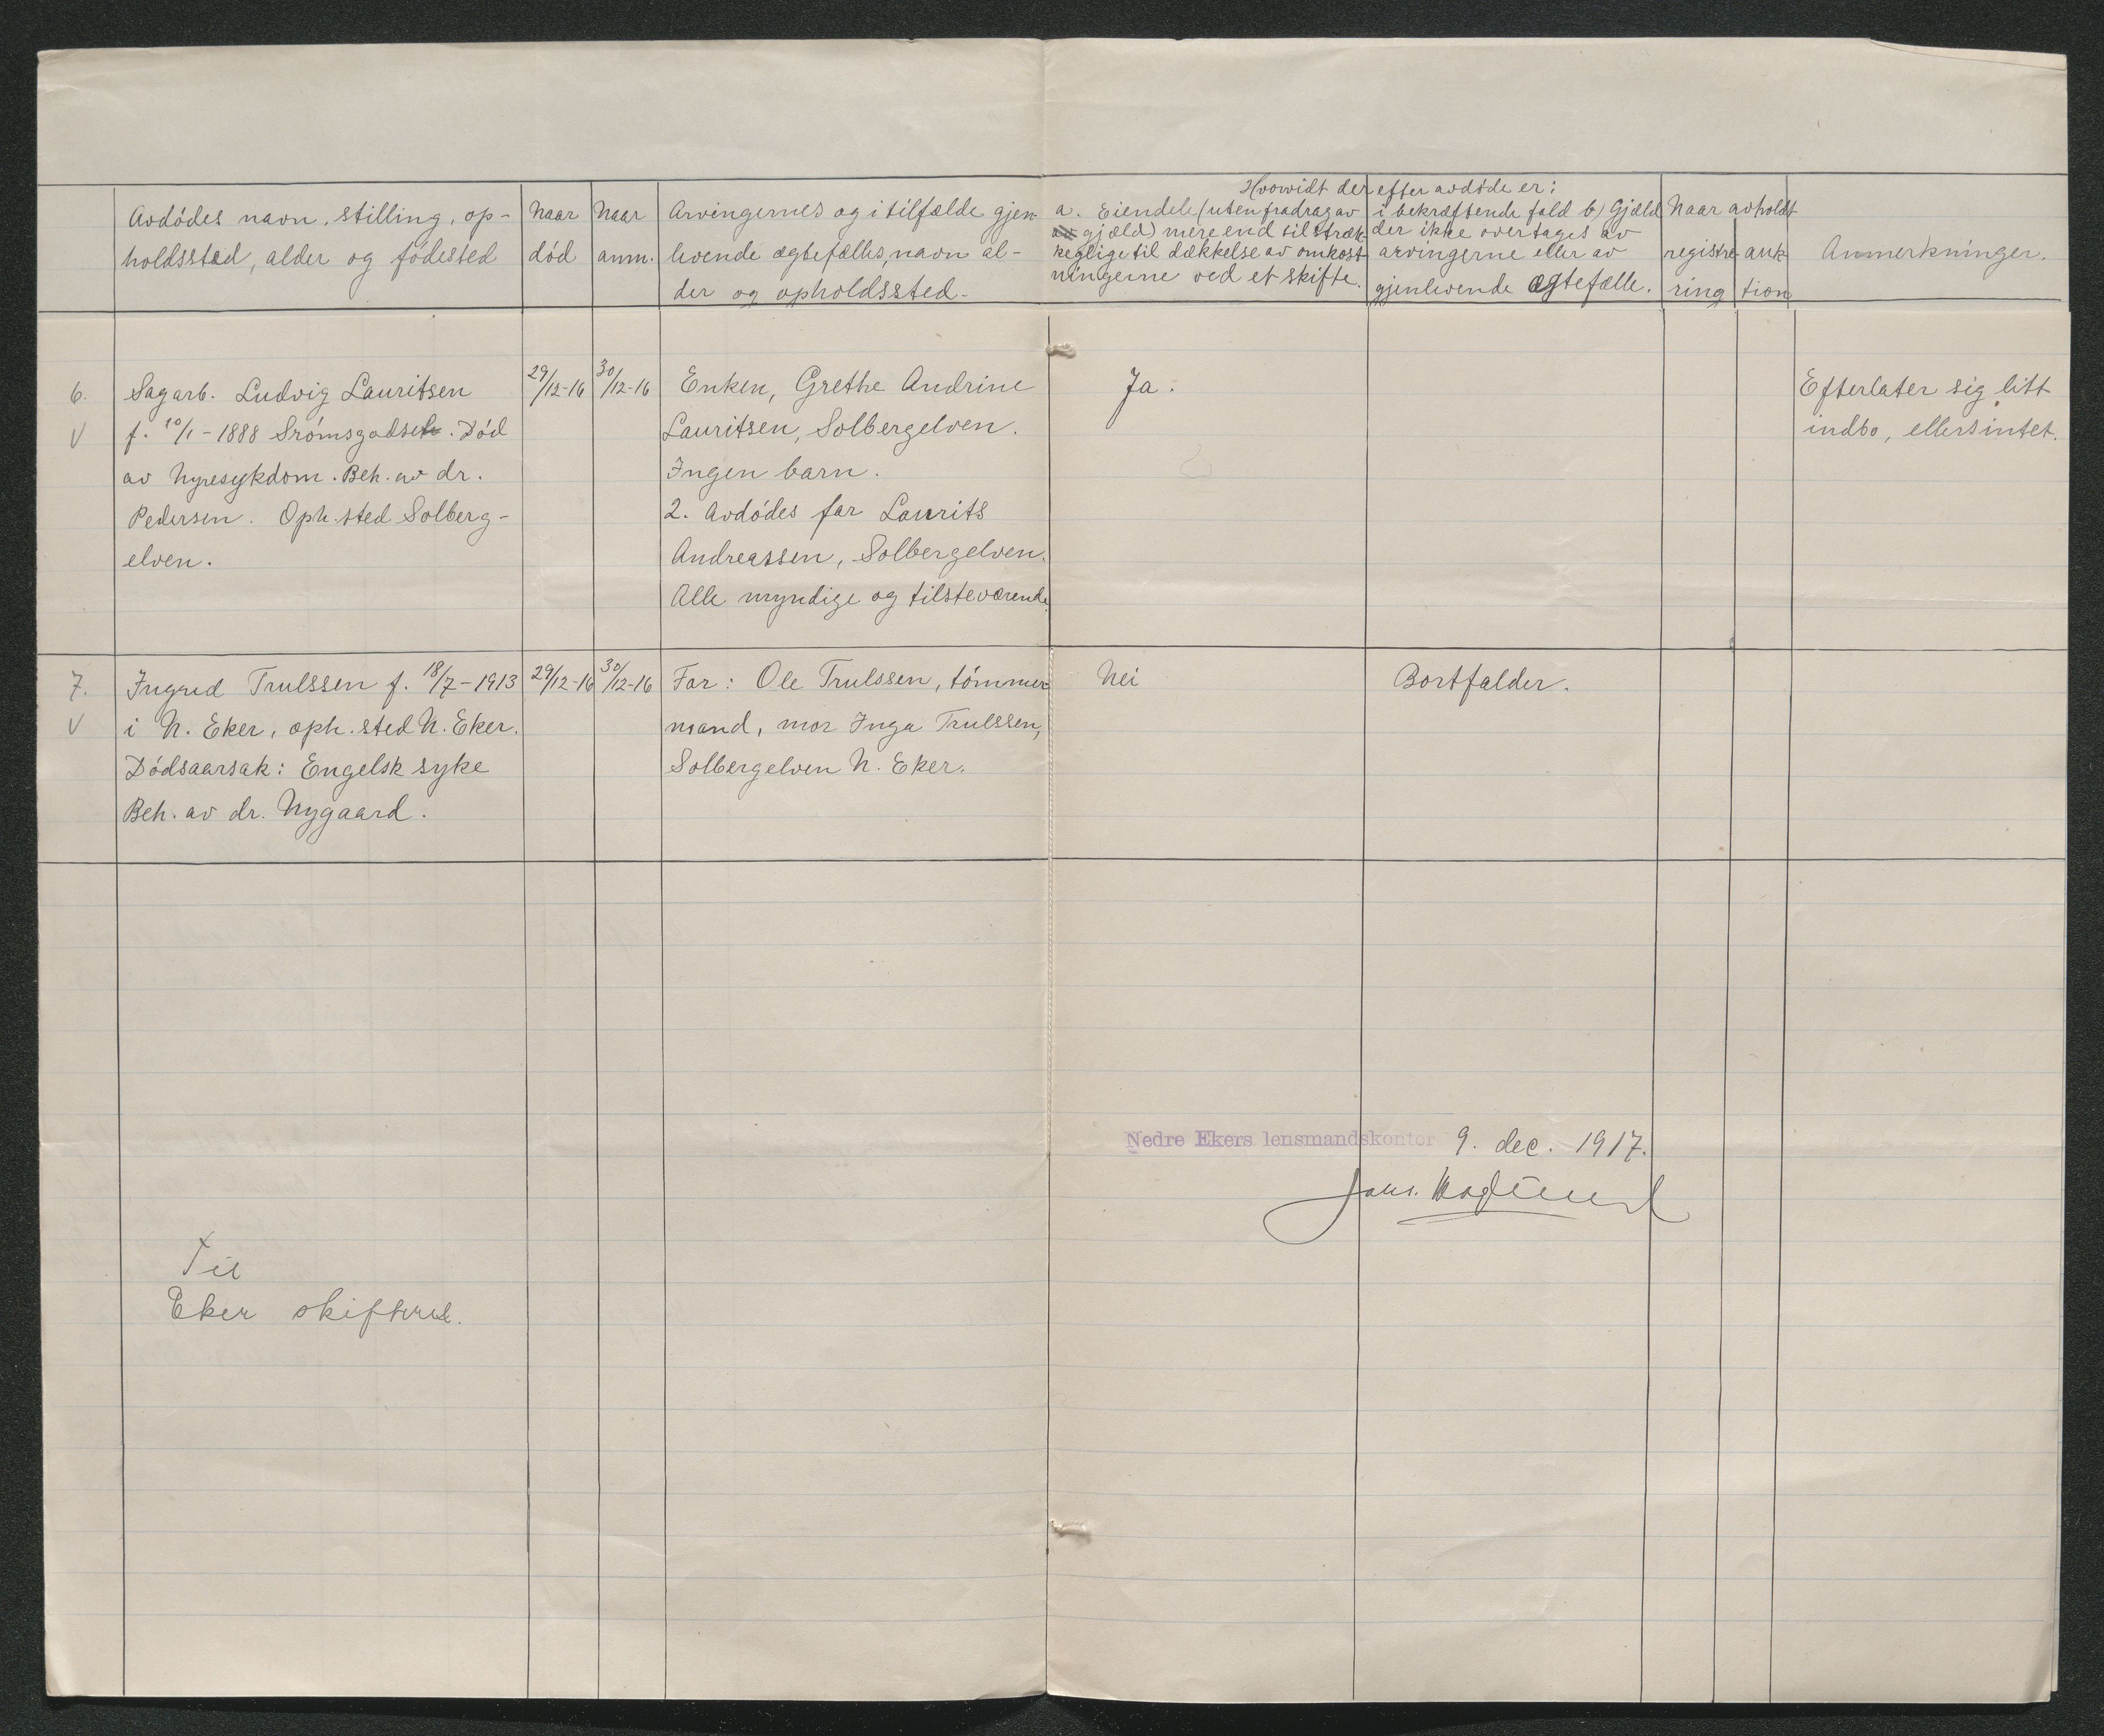 Hvorvidt der efter avdöde er:
Avdödes navn, stilling, op-
holdssted, alder og födested
Naar
död
Naar
anm.
Arvingernes og i tilfælde gjen-
levende ægtefælles, navn al-
der og opholdssted.
a. Eiendele (uten fradrag av
gjæld) mere end tilstræk-
keglige til dækkelse av omkost-
ningerne ved et skifte.
i bekræftende fald b) Gjæld
der ikke overtages av
arvingerne eller av
gjenlevende ægtefælle.
Naar avholdt
registre-
ring
auk-
tion
Anmerkninger.
6.
V
Sagarb. Ludvig Lauritsen
f. 10/1-1888 Srömsgodset. Död
av Nyresykdom. Beh. av dr.
Pedersen. Oph.sted Solberg-
elven.
29/12-16
30/12-16
Enken, Grethe Andrine
Lauritsen, Solbergelven.
Ingen barn.
2. Avdödes far Laurits
Andreassen, Solbergelven.
Alle myndige og tilsteværende.
Ja.
Efterlater sig litt
indbo, ellers intet.
7.
V
Ingrid Trulssen f. 18/7-1913
i N. Eker, oph.sted N. Eker.
Dödsaarsak: Engelsk syke
Beh. av dr. Nygaard.
29/12-16
30/12-16
Far: Ole Trulssen, tömmer
mand, mor Inga Trulssen,
Solbergelven N. Eker.
Nei
Bortfalder.
Nedre Ekers lensmandskontor 9. dec. 1917.
Til
Eker skifteret.